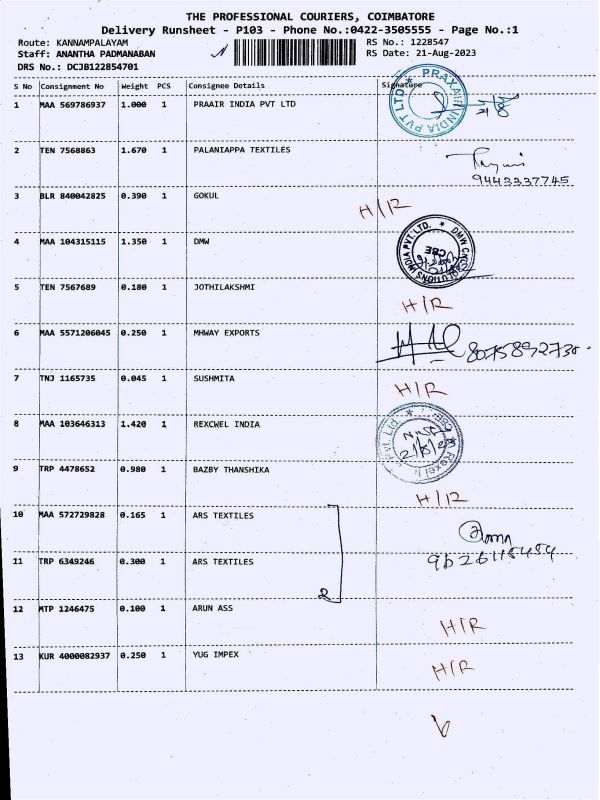 THE PROFESSIONAL COURIERS, COIMBATORE
Delivery Runsheet - P103 - Phone No.:0422-3505555 - Page No.:1
Route: KANNAMPALAYAM RS No.: 1228547
Staff: ANANTHA PADMANABAN RS Date: 21-Aug-2023
DRS No.: DCJB122854701
S No Consignment No Weight PCS Consignee Details Signature
1 MAA 569786937 1.000 1 PRAAIR INDIA PVT LTD PRAXAIR INDIA PVT LTD 21/8
2 TEN 7568863 1.670 1 PALANIAPPA TEXTILES
9443337745
3 BLR 840042825 0.390 1 GOKUL H/R
4 MAA 104315115 1.350 1 DMW INDIA PVT. LTD. DMW CNC SOLUTIONS CBE
5 TEN 7567689 0.180 1 JOTHILAKSHMI H/R
6 MAA 5571206045 0.250 1 MHWAY EXPORTS 8075892738
7 TNJ 1165735 0.045 1 SUSHMITA H/R
8 MAA 103646313 1.420 1 REXCWEL INDIA 21/8/23
9 TRP 4478652 0.980 1 BAZBY THANSHIKA H/R
10 MAA 572729828 0.165 1 ARS TEXTILES
11 TRP 6349246 0.300 1 ARS TEXTILES 9626118484
2
12 MTP 1246475 0.100 1 ARUN ASS H/R
13 KUR 4000082937 0.250 1 YUG IMPEX H/R